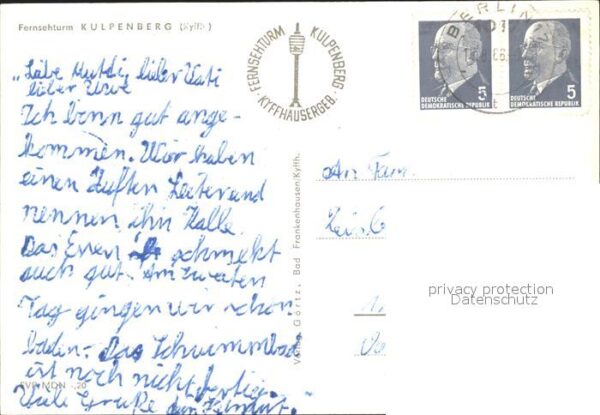 Fernsehturm KULPENBERG (Kyffh.)
FERNSEHTURM KULPENBERG
KYFFHÄUSERGEB.
BERLIN
5
DEUTSCHE
DEMOKRATISCHE REPUBLIK
5
DEUTSCHE
DEMOKRATISCHE REPUBLIK
"Liebe Mutti, lieber Vati
lieber Uwe
Ich binn gut ange-
kommen. Wir haben
einen Leiter und
nennen ihn Kalle.
Das Essen schmekt
auch gut. Am zweiten
Tag gingen wir schon
baden. Das Schwimmbad
ist noch nicht fertig.
Viele Grüße Helmut."
Verlag Görtz, Bad Frankenhausen/Kyffh.
An Fam.
privacy protection
Datenschutz
EVP MDN -,20